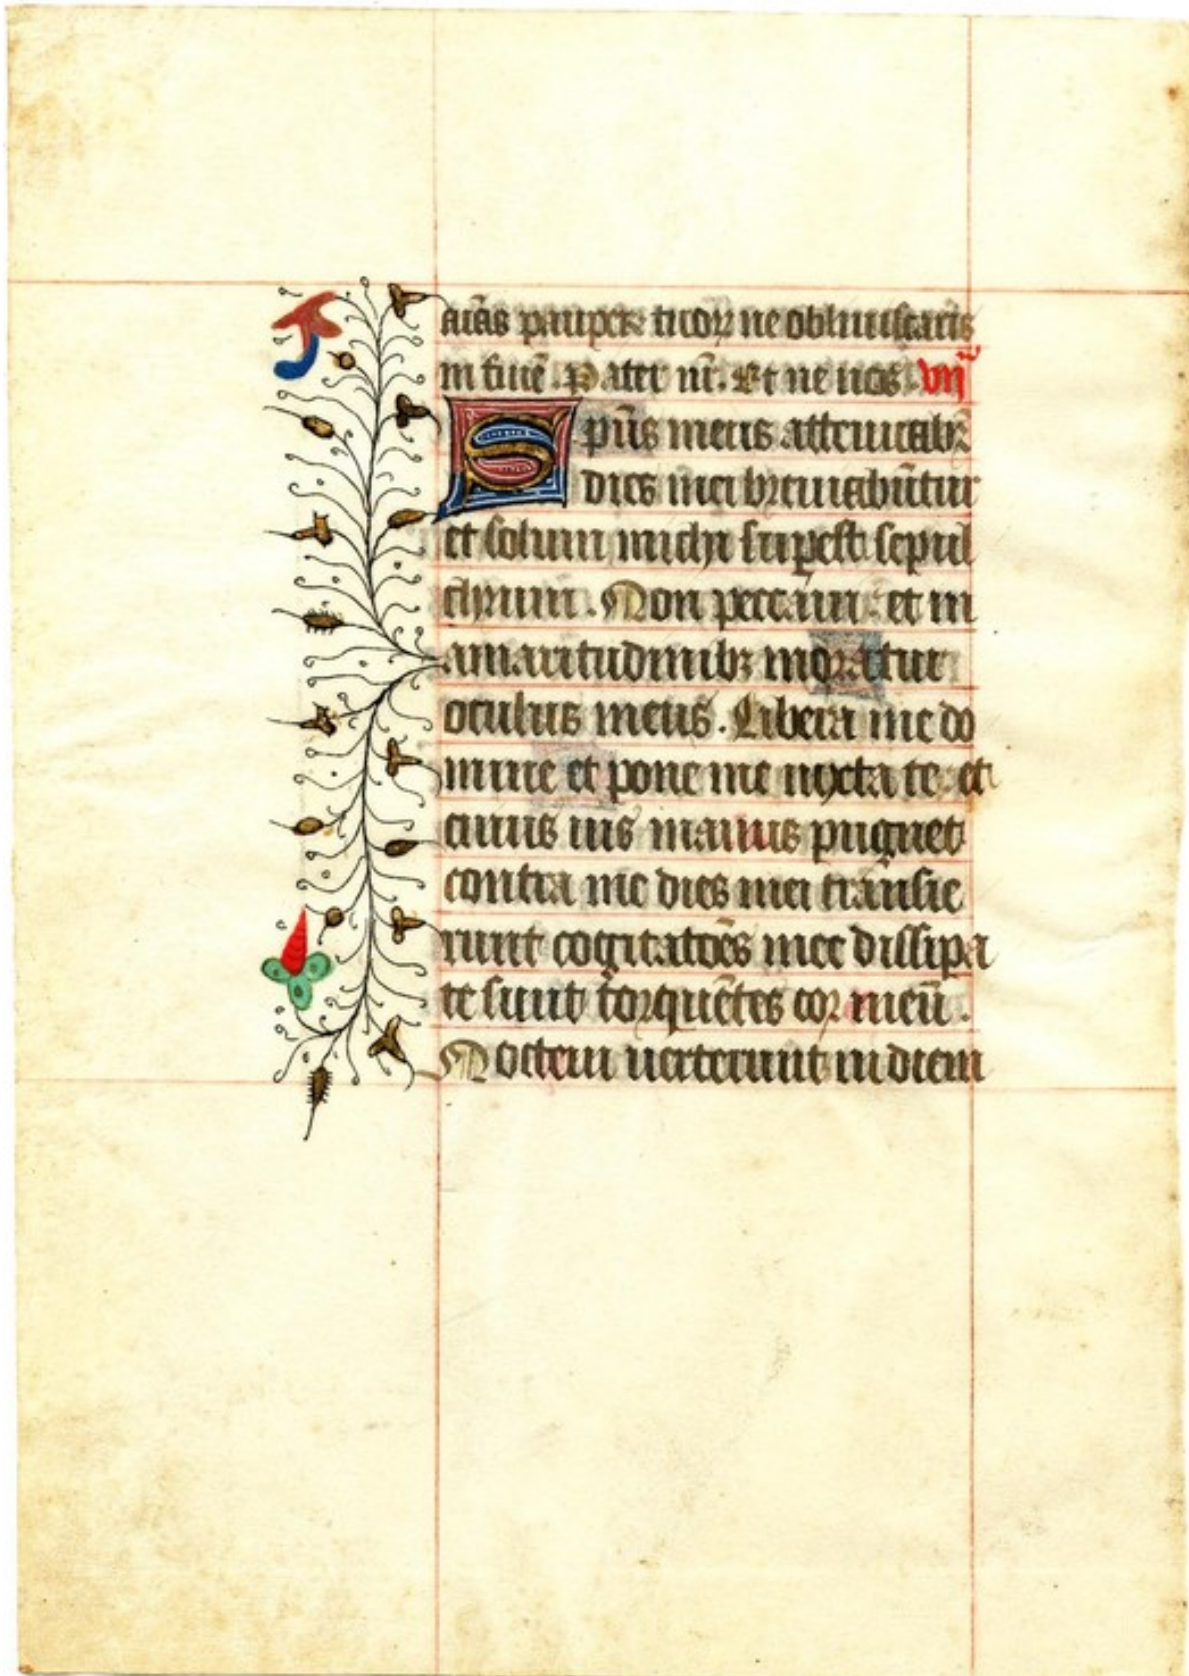 aīas pauperū tuoꝝ ne obliuiscaris
in finē. Pater nr̄. Et ne nos. vij
Spūs meus attenuabit̄
dies mei breuiabūtur
et solum michi suꝑest sepul
chrum. Non peccaui et in
amaritudinibꝫ moratur
oculus meus. Libera me do
mine et pone me iuxta te et
cuius uis manus pugnet
contra me dies mei transie
runt cogitatōēs mee dissipa
te sunt torquētes cor meū.
Noctem uerterunt in diem